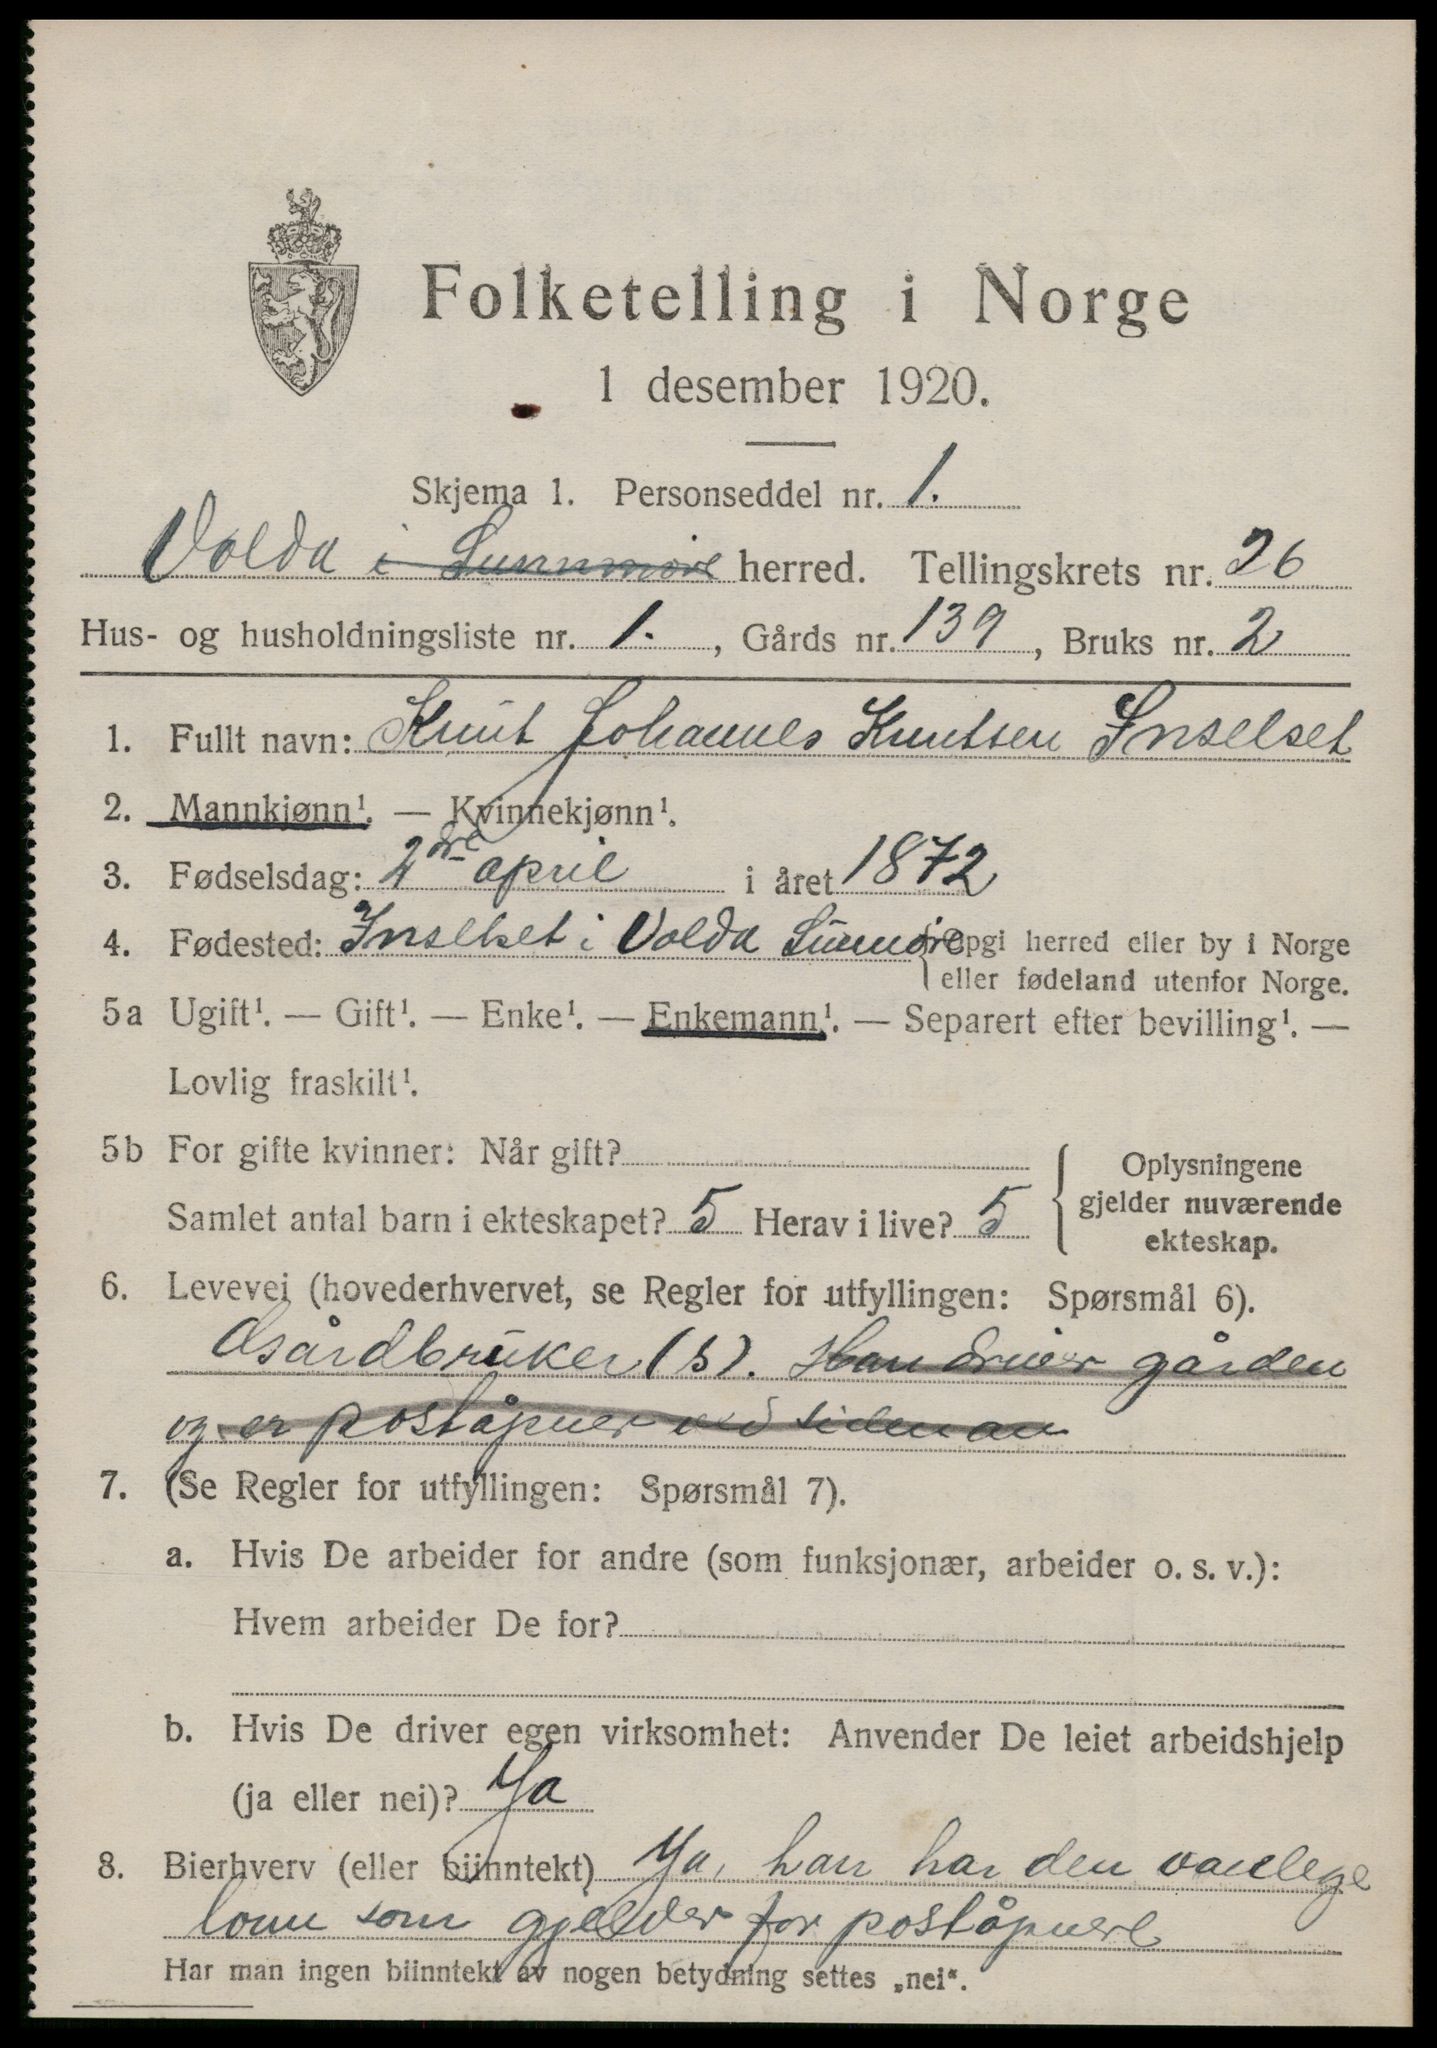 Folketelling i Norge
1 desember 1920.
Skjema 1. Personseddel nr. 1.
Volda i Sunnmøre herred. Tellingskrets nr. 26
Hus- og husholdningsliste nr. 1. , Gårds nr. 139 , Bruks nr. 2
1. Fullt navn: Knut Johannes Knutsen Inselset
2. Mannkjønn¹. — Kvinnekjønn¹.
3. Fødselsdag: 2dre april i året 1872
4. Fødested: Inselset i Volda Sunmøre { Opgi herred eller by i Norge
eller fødeland utenfor Norge.
5a Ugift¹. — Gift¹. — Enke¹. — Enkemann¹. — Separert efter bevilling¹. —
Lovlig fraskilt¹.
5b For gifte kvinner: Når gift?
Samlet antal barn i ekteskapet? 5 Herav i live? 5
{ Oplysningene
gjelder nuværende
ekteskap.
6. Levevei (hovederhvervet, se Regler for utfyllingen: Spørsmål 6).
Gsårdbruker (s). Han driver gården
og er poståpner ved siden av
7. (Se Regler for utfyllingen: Spørsmål 7).
a. Hvis De arbeider for andre (som funksjonær, arbeider o. s. v.):
Hvem arbeider De for?
b. Hvis De driver egen virksomhet: Anvender De leiet arbeidshjelp
(ja eller nei)? Ja
8. Bierhverv (eller biinntekt) Ja, han har den vanlege
lønn som gjelder for poståpnere
Har man ingen biinntekt av nogen betydning settes „nei“.